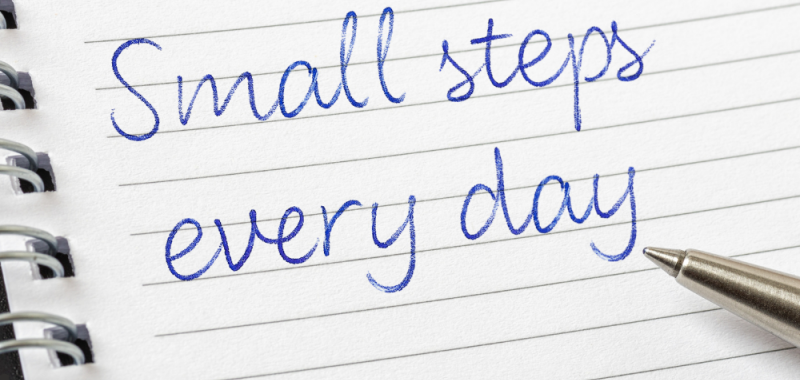 Small steps
every day